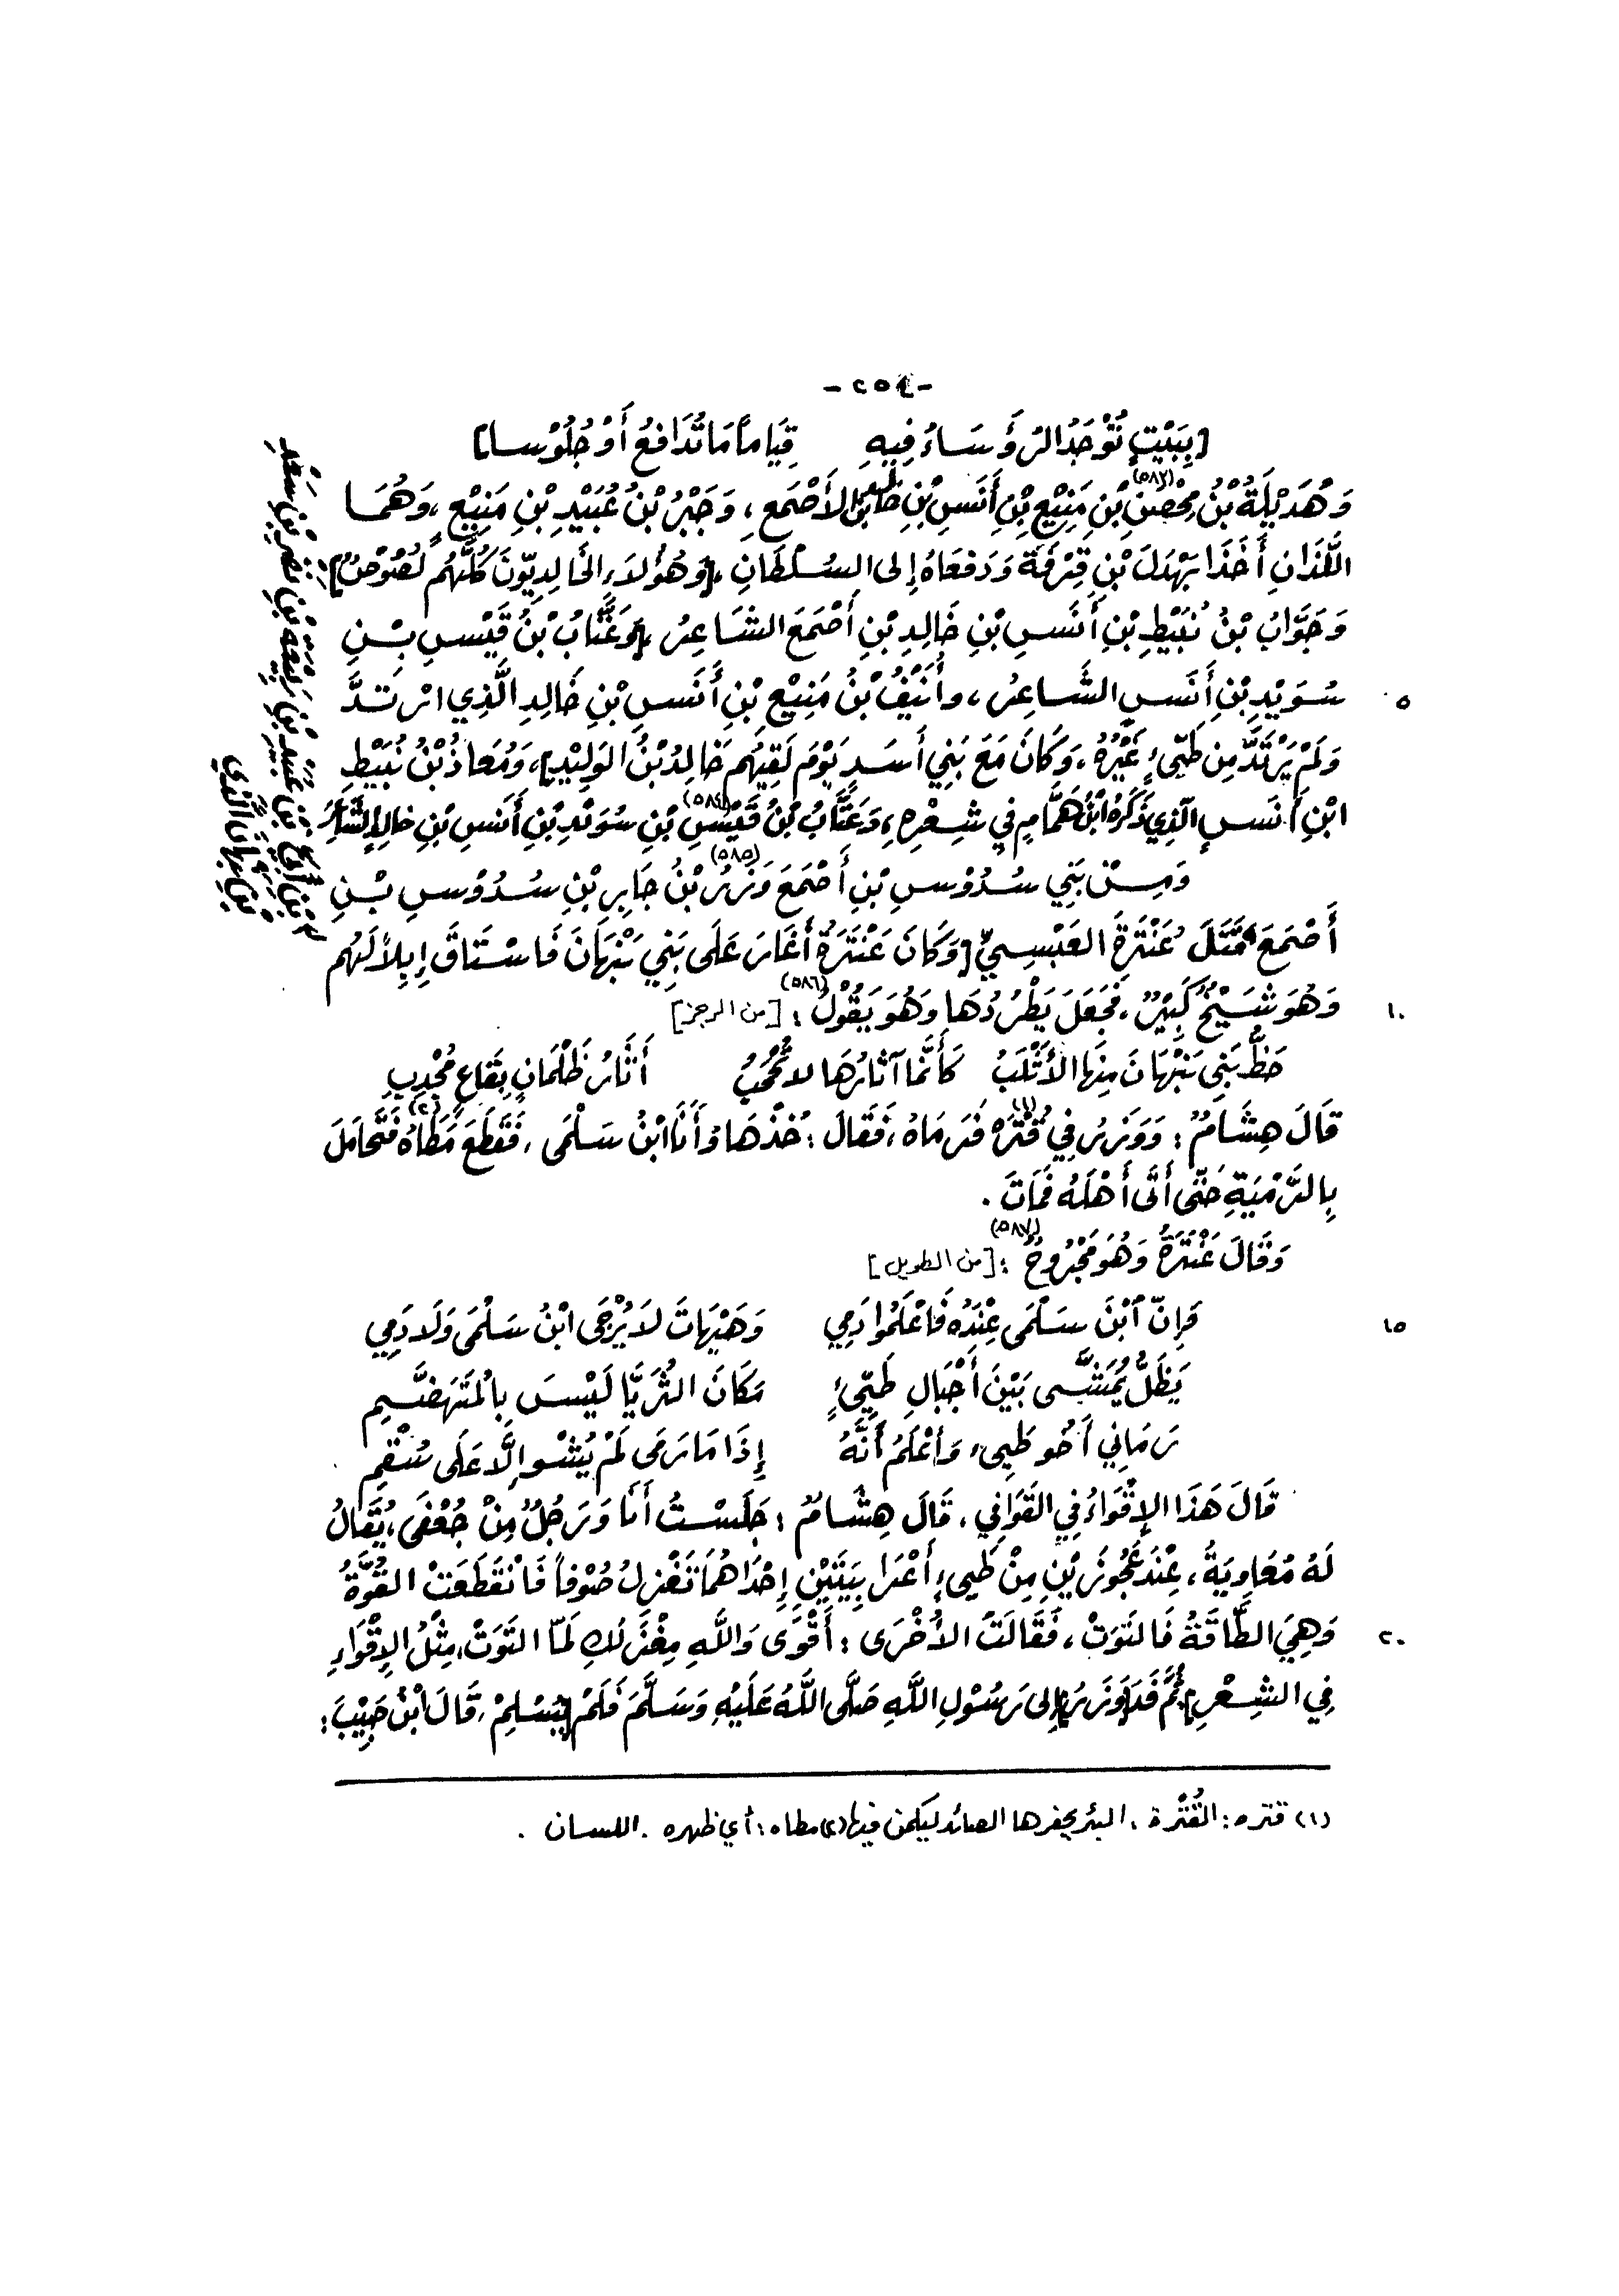 -٢٥٤-
[بِبَيْتٍ تُوْجَدُ الرُؤَسَاءُ فِيهِ    قِيَاماً مَا تُدَافِعُ أَوْ جُلُوْسا]
وَهُدَيْلَةُ بْنُ مِحْصَنِ(٥٨٣) بْنِ مَنِيْعِ بْنِ أَنَسِ بْنِ خَالِدِ بْنِ الأَصْمَعِ، وَجَبْرُ بْنُ عُبَيْدِ بْنِ مَنِيْعٍ، وَهُمَا
اللَّذَانِ أَخَذَا بَهْدَلَ بْنِ قِرْفَةَ وَدَفَعَاهُ إلى السُلْطَانِ [وَهُؤلَاءِ الخَالِدِيّونَ كُلُّهُم لُصُوْصٌ]
وَجَوَّابُ بْنُ نُبَيْطِ بْنِ أَنَسِ بْنِ خَالِدِ بْنِ أَصْمَعَ الشَاعِرُ [وَعَتَّابُ بْنُ قَيْسِ بْنِ
٥ سُوَيْدِ بْنِ أَنَسٍ الشَّاعِرُ، وأُنَيْفُ بْنُ مَنِيْعِ بْنِ أَنَسِ بْنِ خَالِدِ الَّذِي ارْتَدَّ
وَلَمْ يَرْتَدَّ مِن طَيّىءٍ غَيْرُهُ، وَكَانَ مَعَ بَنِي أَسَدٍ يَوْمَ لَقِيَهُم خَالِدُ بْنُ الوَلِيْدِ]، وَمُعَاذُ بْنُ نُبَيْطِ
ابْنِ أَنَسٍ الّذِي ذَكَرَهُ ابْنُ هَمَّامٍ فِي شِعْرِهِ، وَعَتَّابُ بْنُ قَيْسِ(٥٨٤) بْنِ سُوَيْدِ بْنِ أَنَسِ بْنِ خَالِدٍ الشَّاعِرُ
وَمِنْ بَنِي سُدُوْسِ بْنِ أَصْمَعَ وَزَرُ(٥٨٥) بْنُ جَابِرِ بْنِ سُدُوْسِ بْنِ
أَصْمَعَ قَتَلَ عَنْتَرَةَ العَبْسِيَّ [وَكَانَ عَنْتَرَةُ أَغَارَ عَلَى بَنِي نَبْهَانَ فَاسْتَاقَ إِبِلاً لَهُم
١٠ وَهُوَ شَيْخٌ كَبِيْرٌ، فَجَعَلَ يَطْرُدُهَا وَهُوَ يَقُوْلُ(٥٨٦): [من الرجز]
حَظُّ بَنِي نَبْهَانَ مِنْهَا الأَثْلَبُ    كَأَنَّمَا آثَارُهَا لا تُحْجَبُ    أَثَارُ ظُلْمَانٍ بِقَاعٍ مُجْدِبِ
قَالَ هِشَامٌ: وَوَزَرُ فِي قُتْرَه(١) فَرَمَاهُ، فَقَالَ: خُذْهَا وَأَنَا ابْنُ سَلْمَى، فَقَطَعَ مَطَاهُ(٢) فَتَحَامَلَ
بِالرَّمْيَةِ حَتّى أَتَى أَهْلَهُ فَمَاتَ.
وَقَالَ عَنْتَرَةُ وَهُوَ مَجْرُوحٌ(٥٨٧): [من الطويل]
١٥ وَإِنّ ابْنَ سَلْمَى عِنْدَهُ فَاعْلَمُوا دَمِي    وَهَيْهَاتَ لاَ يُرْجَى ابْنُ سَلْمَى وَلَا دَمِي
يَظَلُّ يُمَشَّى بَيْنَ أَجْبَالِ طَيِّىءٍ    مَكَانَ الثُرَيَّا لَيْسَ بِالْمُتَهَضَّمِ
رَمَانِي أَخُو طَيىءٍ وَأَعْلَمُ أَنَّهُ    إِذَا مَا رَمَى لَمْ يُشْوِ إلَّا عَلَى سُقْمِ
قَالَ هَذَا الإِقْوَاءُ فِي القَوَافِي، قَالَ هِشَامٌ: جَلَسْتُ أَنَا وَرَجُلٌ مِنْ جُعْفَى، يُقَالُ
لَهُ مُعَاوِيَةُ، عِنْدَ عَجُوزَيْنِ مِنْ طَيىءٍ أَعْرَابِيَتَيْنِ إِحْدَاهُمَا تَغْزِلُ صُوْفاً فَانْقَطَعَتْ القُوَّةُ
٢٠ وَهِيَ الطَّاقَةُ فَالتَوَتْ، فَقَالَتْ الأُخْرَى: أَقْوَى وَاللَّهِ مِغْزَلُكِ لَمّا التَوَتْ، مِثْلُ الإِقْوَاءِ
فِي الشِعْرِ] ثُمَّ فَدَ [وَزَرُ] إلى رَسُوْلِ اللَّهِ صَلَّى اللَّهُ عَلَيْهِ وَسَلَّمَ فَلَمْ [يُسْلِمْ، قَالَ ابْنُ حَبِيْبَ:
(١) قتره: القُتْرة، البئر يحفرها الصائد ليكمن فيها (٢) مطاه: أي ظهره. اللسان.